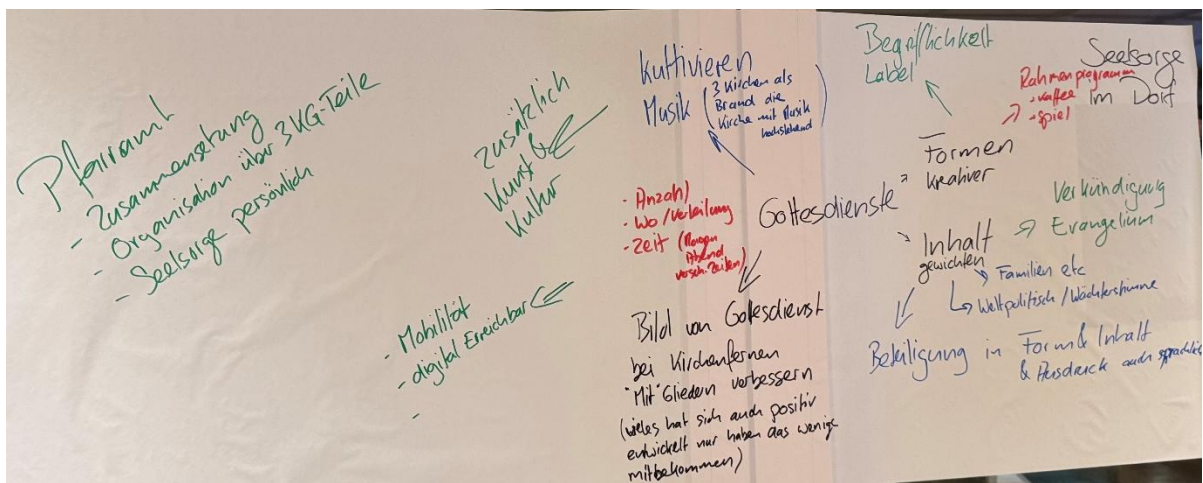 Pfarramt
- Zusammensetzung
- Organisation über 3 KG-Teile
- Seelsorge persönlich
zusätzlich
Kunst &
Kultur
- Mobilität
- digital Erreichbar
-
kultivieren
Musik (3 Kirchen als
Brand die
Kirche mit Musik
hochstehend)
- Anzahl
- Wo/Verteilung
- Zeit (Morgen
Abend
versch. Zeiten)
Gottesdienste
Bild von Gottesdienst
bei Kirchenfernen
"Mit"Gliedern verbessern
(vieles hat sich auch positiv
entwickelt nur haben das wenige
mitbekommen)
Begrifflichkeit
Label
Formen
kreativer
Rahmenprogramm
- Kaffee
- Spiel
Seelsorge
im Dorf
Inhalt
gewichten
Verkündigung
Evangelium
Familien etc
Weltpolitisch/Wächterstimme
Beteiligung in Form & Inhalt
& Ausdruck auch sprachlich